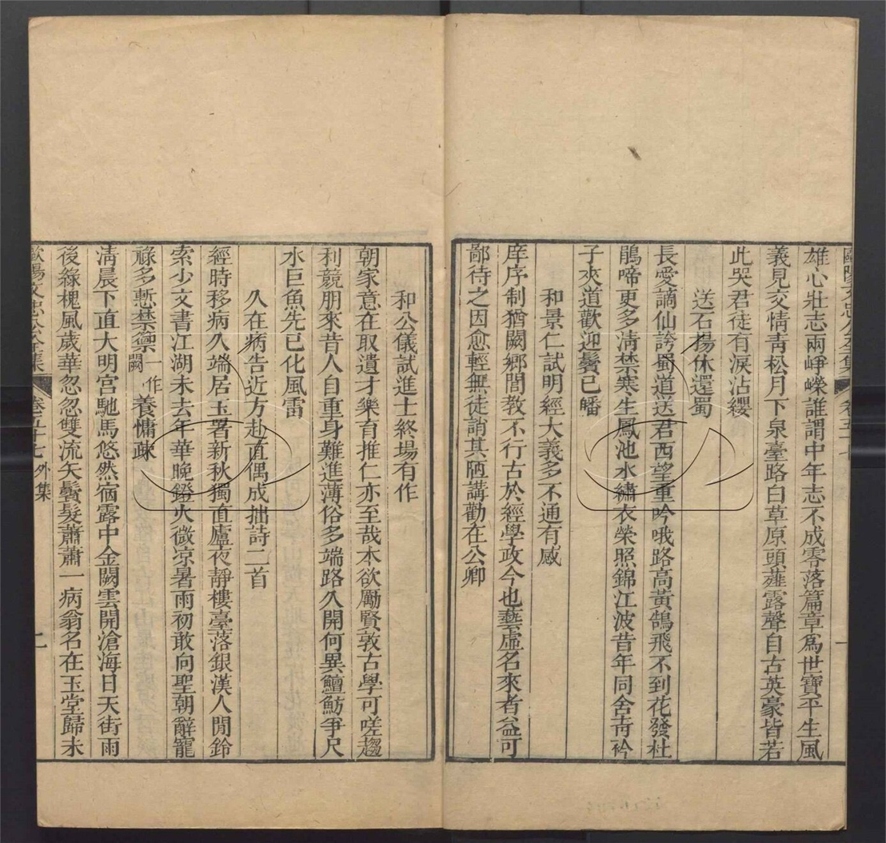 雄心壯志兩崢嶸誰謂中年志不成零落篇章爲世寶平生風
義見交情靑松月下泉臺路白草原頭薤露聲自古英豪皆若
此哭君徒有淚沾纓
送石揚休還蜀
長愛謫仙誇蜀道送君西望重吟哦路高黃鵠飛不到花發杜
鵑啼更多淸禁寒生鳳池水繡衣榮照錦江波昔年同舍靑衿
子夾道歡迎鬢已皤
和景仁試明經大義多不通有感
庠序制猶闕鄉閭敎不行古於經學政今也藝虛名來者益可
鄙待之因愈輕無徒誚其陋講勸在公卿
和公儀試進士終場有作
朝家意在取遺才樂育推仁亦至哉本欲勵賢敦古學可嗟趨
利競朋來昔人自重身難進薄俗多端路久開何異鱣魴爭尺
水巨魚先已化風雷
久在病告近方赴直偶成拙詩二首
經時移病久端居玉署新秋獨直廬夜靜樓臺落銀漢人閒鈴
索少文書江湖未去年華晚鐙火微凉暑雨初敢向聖朝辭寵
祿多慙禁籞一作闕養慵疎
淸晨下直大明宮馳馬悠然宿露中金闕雲開滄海日天街雨
後綠槐風歲華忽忽雙流矢鬢髮蕭蕭一病翁名在玉堂歸未
歐陽文忠公全集
卷五十七
外集
二